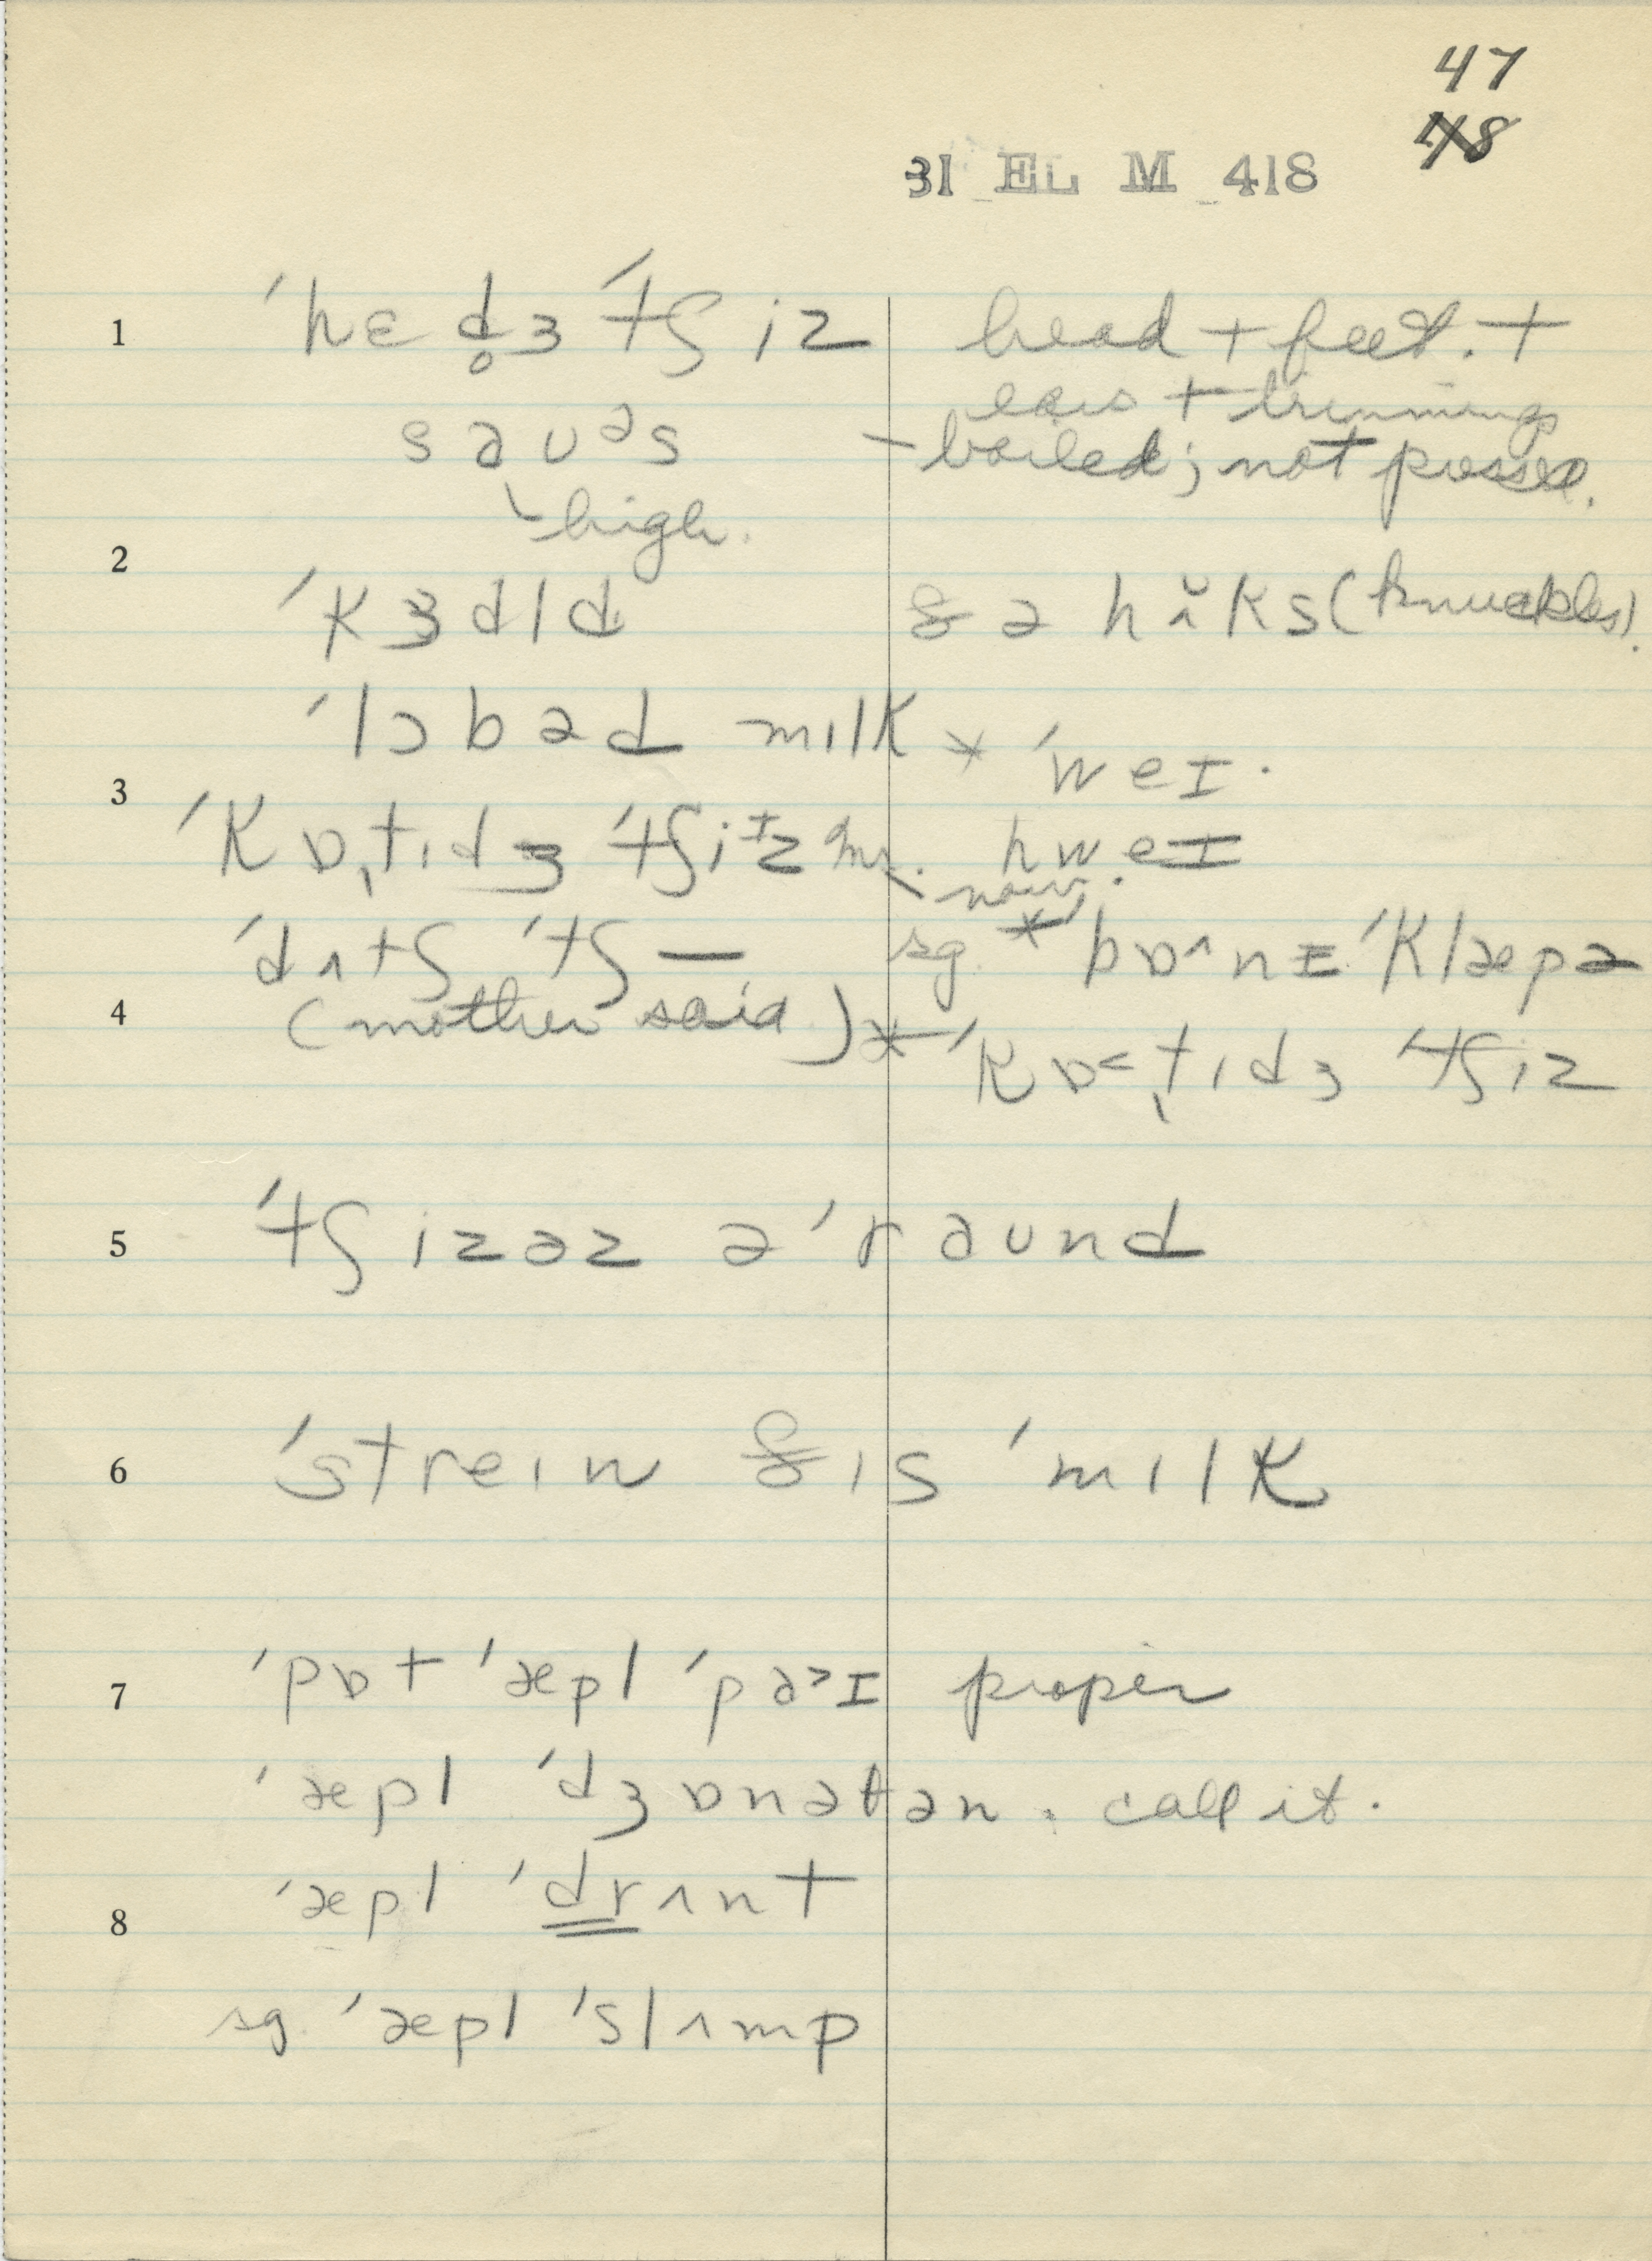 47
48
31 EL M 418
1 ˈhɛd̥ɜ ˈtʃiz head + feet. +
ears + trimmings
saʊᵊs – boiled; not pressed.
high.
2
ˈkɜdld & ə hʌ̆ks (knuckles).
ˈlɔbəd mılk × ˈweɪ.
3
ˈkɒtıdɜ ˈtʃiɪz hweɪ
now.
ˈdʌtʃ ˈtʃ— sg. × bɒ^nɪ ˈklæpə
4 (mother said) × ˈkɒ<tıdɜ ˈtʃiz
5 ˈtʃizəz əˈraʊnd
6 ˈstreın &ıs ˈmılk
7 ˈpɒt ˈæpl ˈpa>ɪ proper
ˈæpl ˈdʒɒnəθən. call it.
8 ˈæpl ˈdrʌnt
sg. ˈæpl ˈslʌmp